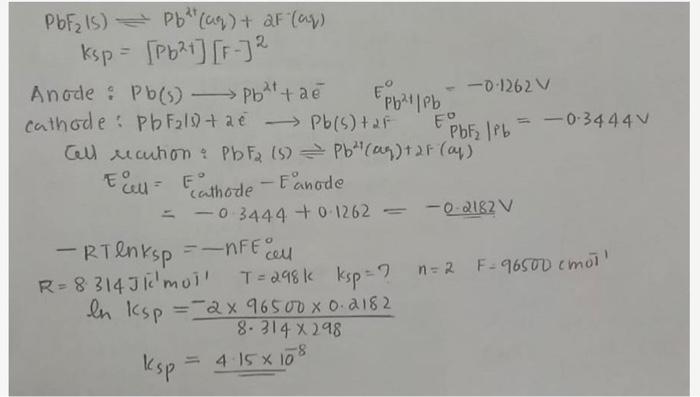 PbF₂(s) ⇌ Pb²⁺(aq) + 2F⁻(aq)
Ksp = [Pb²⁺][F-]²
Anode : Pb(s) ⟶ Pb²⁺ + 2e⁻ E°Pb²⁺|Pb = -0.1262V
Cathode : PbF₂(s) + 2e⁻ ⟶ Pb(s) + 2F⁻ E°PbF₂|Pb = -0.3444V
Cell reaction : PbF₂(s) ⇌ Pb²⁺(aq) + 2F⁻(aq)
E°cell = E°cathode - E°anode
= -0.3444 + 0.1262 = -0.2182V
-RTlnKsp = -nFE°cell
R = 8.314JK⁻¹mol⁻¹ T = 298K Ksp = ? n = 2 F = 96500 Cmol⁻¹
ln Ksp = -2 × 96500 × 0.2182
8.314 × 298
Ksp = 4.15 × 10⁻⁸